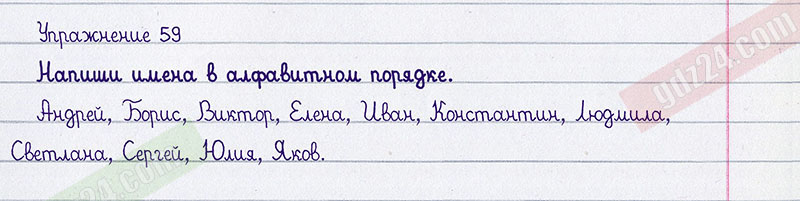 Упражнение 59
Напиши имена в алфавитном порядке.
Андрей, Борис, Виктор, Елена, Иван, Константин, Людмила,
Светлана, Сергей, Юлия, Яков.
gdz24.com
gdz24.com